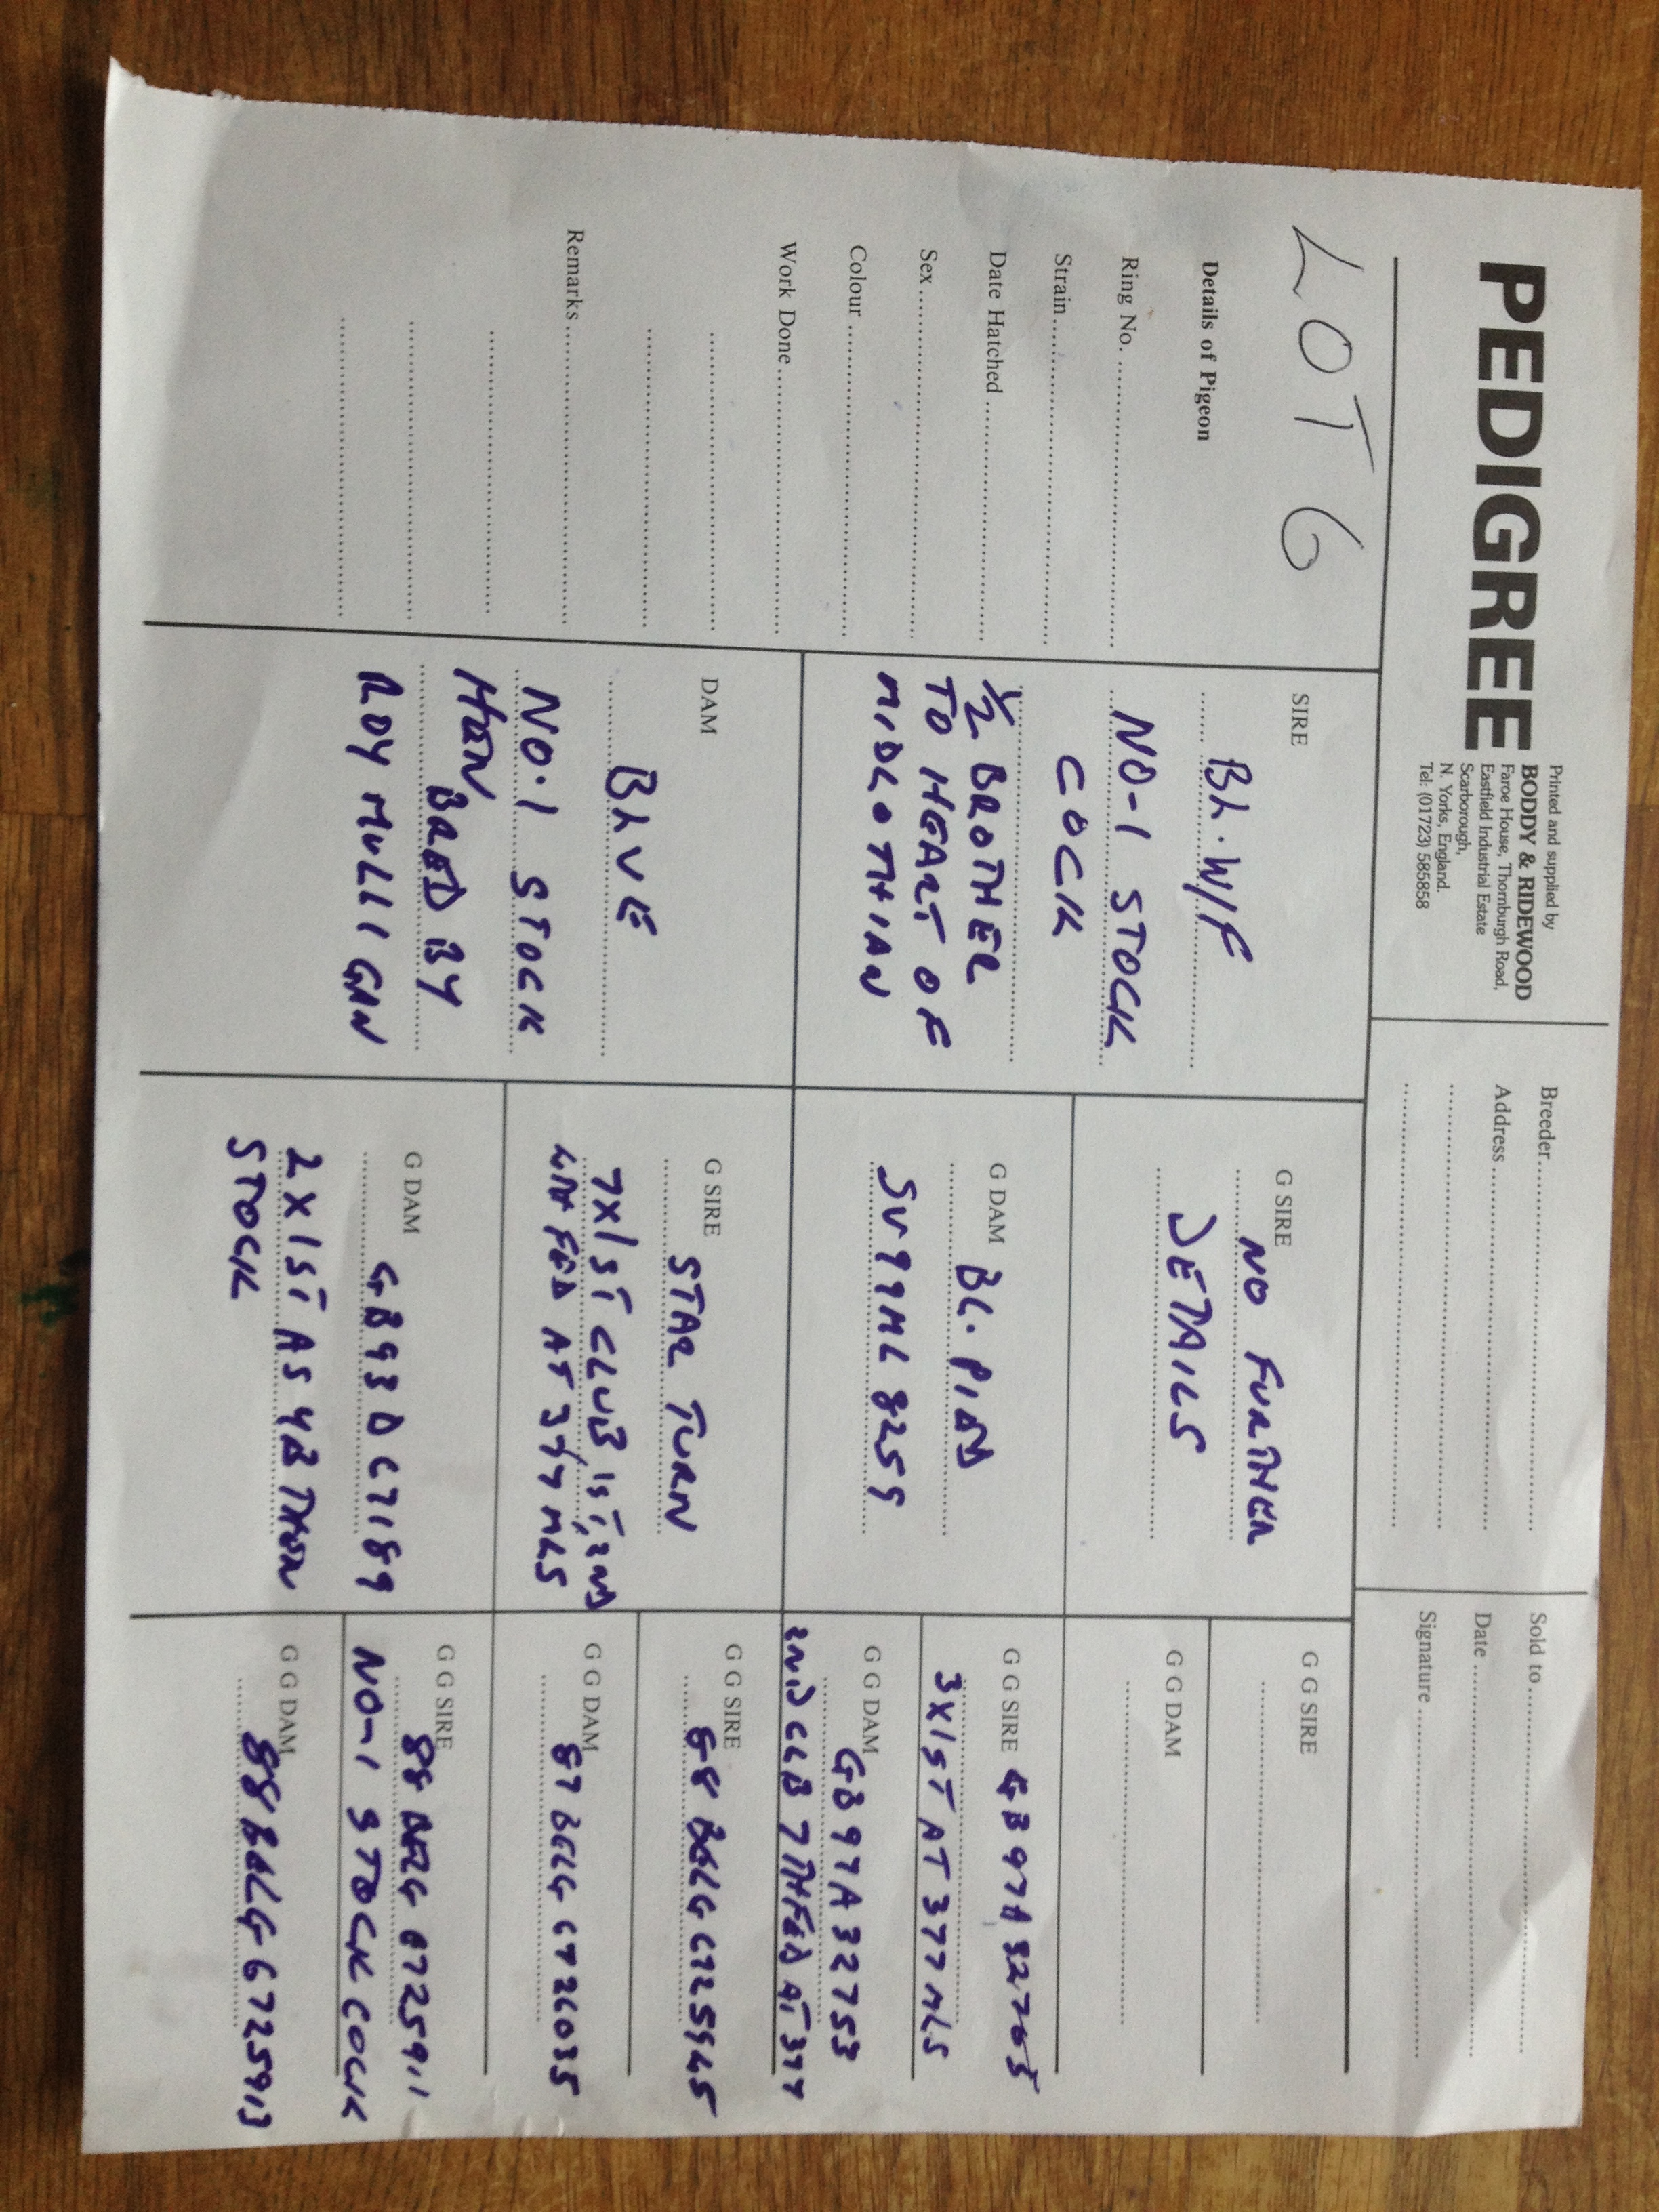 PEDIGREE
Printed and supplied by
BODDY & RIDEWOOD
Faroe House, Thornburgh Road,
Eastfield Industrial Estate
Scarborough,
N. Yorks, England.
Tel: (01723) 585858
Breeder
Address
Sold to
Date
Signature
LOT 6
Details of Pigeon
Ring No.
Strain
Date Hatched
Sex
Colour
Work Done
Remarks
SIRE
BL. W/F
NO-1 STOCK
COCK
1/2 BROTHER
TO HEART OF
MIDLOTHIAN
DAM
BLUE
NO.1 STOCK
HEN BRED BY
ROY MULLIGAN
G SIRE
NO FURTHER
DETAILS
G DAM BL. PIED
SU99ML 8259
G SIRE
STAR TURN
7X1ST CLUB 1ST, 2ND
FED AT 377 MLS
G DAM
GB93D C7189
2X1ST AS YB THEN
STOCK
G G SIRE
G G DAM
G G SIRE
3X1ST AT 377 MLS
G G DAM
GB97A32753
2ND CLB 7TH FED AT 377
G G SIRE
G G DAM
87 BELG 6726035
G G SIRE
88 BELG 6725911
NO-1 STOCK COCK
G G DAM
88 BELG 6725913